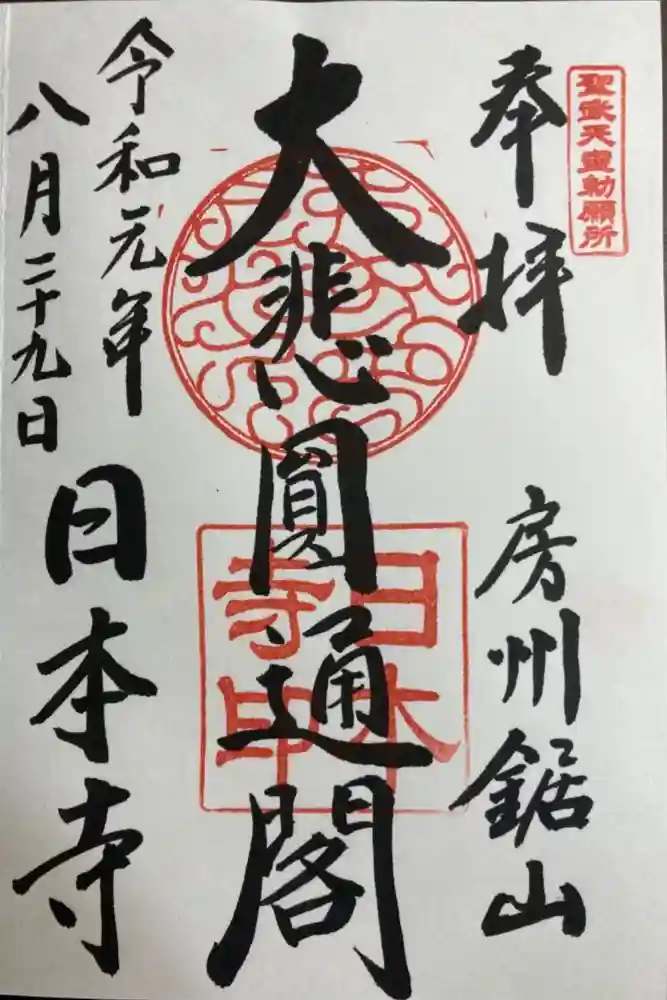 聖武天皇勅願所
奉拝
房州鋸山
大悲圓通閣
日本寺印
令和元年
八月二十九日
日本寺